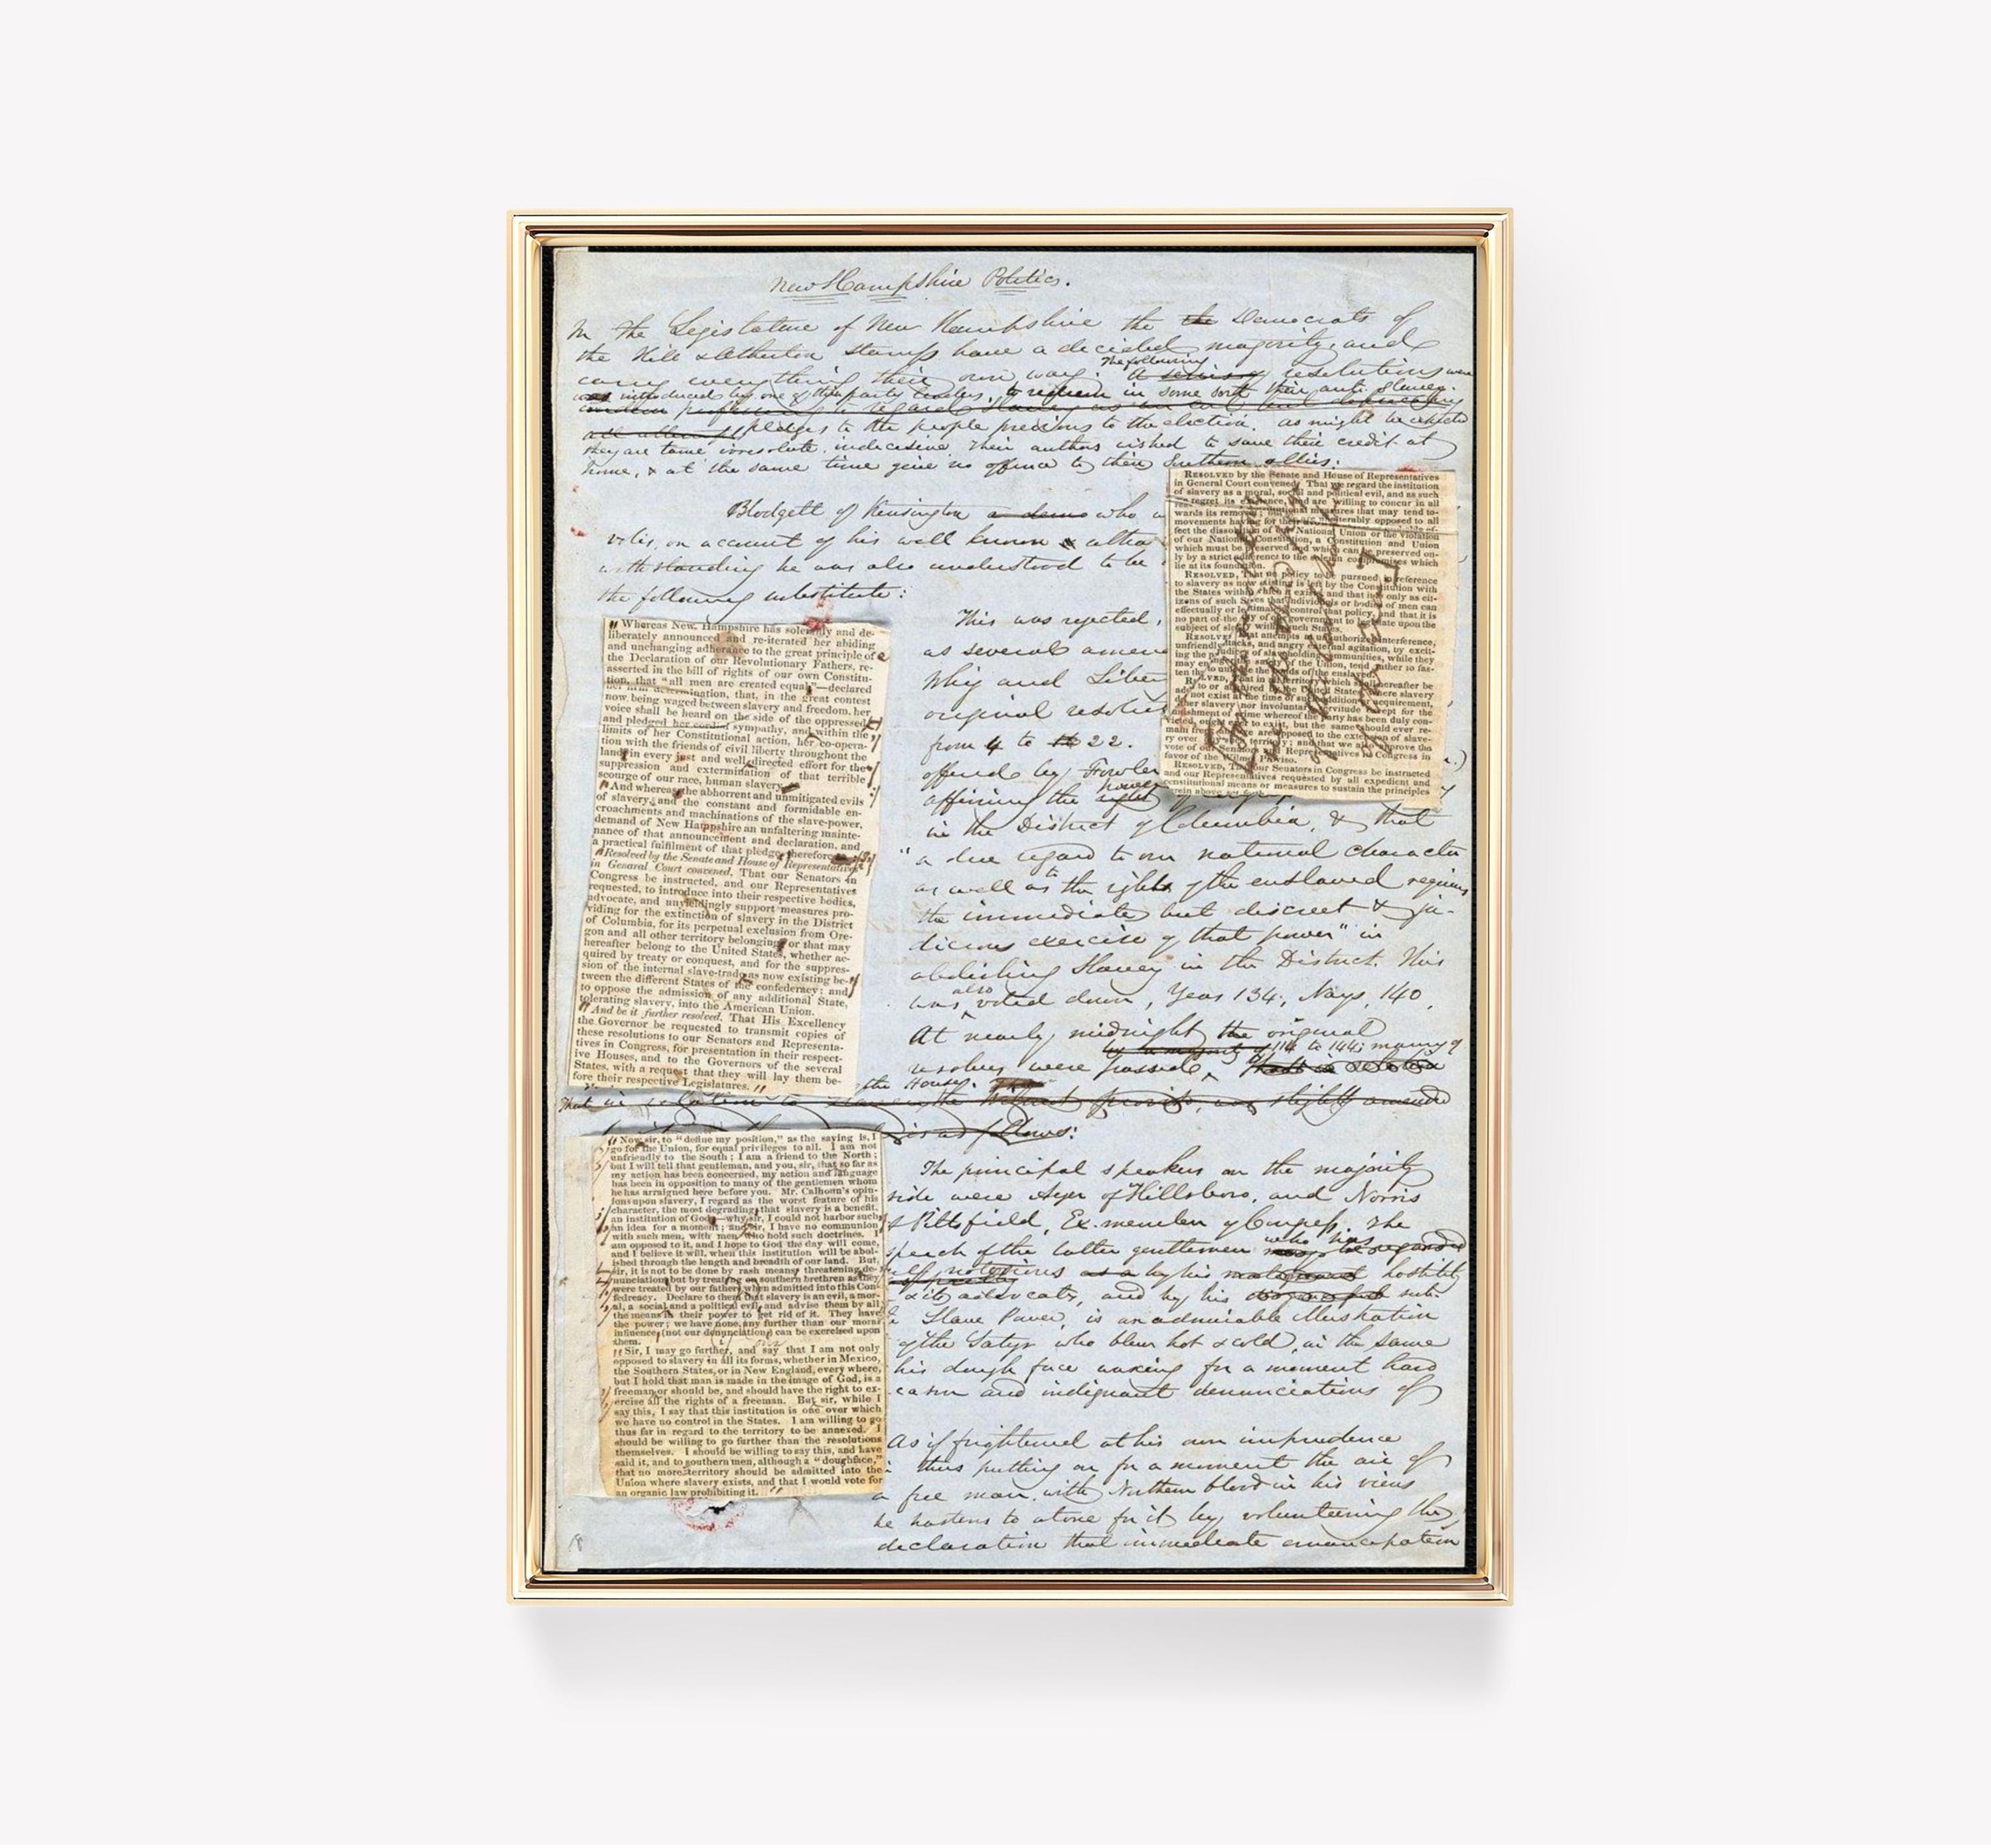 New Hampshire Politics.
In the Legislature of New Hampshire the the Democrats of
the Hill & Atherton stamp have a decided majority, and
carry everything their own way. The following A series of resolutions were
was introduced by one of their party leaders, to redeem in some sort their anti-slavery
pledges to the people previous to the election. as might be expected
they are tame, irresolute, indecisive. Their authors wished to save their credit at
home, & at the same time give no offence to their Southern allies:
Blodgett of Kensington a demo who
on account of his well known
withstanding he was also understood to be
the following substitute:
RESOLVED by the Senate and House of Representatives
in General Court convened. That we regard the institution
of slavery as a moral, social and political evil, and as such
regret its existence, and are willing to concur in all
wards its removal; measures that may tend to-
movements having for their unalterably opposed to all
fect the dissolution of our National Union or the violation
of our National Constitution, a Constitution and Union
which must be preserved and which can be preserved on-
ly by a strict adherence to the solemn compromises which
lie at its foundation.
RESOLVED, That the policy to be pursued in reference
to slavery as now existing is left by the Constitution with
the States within which it exists, and that it is only as cit-
izens of such States that individuals or bodies of men can
effectually or legitimately control that policy, and that it is
no part of the duty of our government to legislate upon the
subject of slavery within such States.
RESOLVED, That attempts at unauthorized interference,
unfriendly attacks, and angry sectional agitation, by excit-
ing the prejudices of slaveholding communities, while they
may endanger the safety of the Union, tend rather to fas-
ten than to unloose the bonds of the enslaved.
RESOLVED, That in all territory which shall hereafter be
added to or acquired by the United States, where slavery
does not exist at the time of such addition or acquirement,
neither slavery nor involuntary servitude except for the
punishment of crime whereof the party has been duly con-
victed, ought ever to exist, but the same should ever re-
main free; are opposed to the extension of slave-
ry over territory; and that we also approve the
vote of our Senators and Representatives in Congress in
favor of the Wilmot Proviso.
RESOLVED, That our Senators in Congress be instructed
and our Representatives requested by all expedient and
constitutional means or measures to sustain the principles
herein above set forth.
"Whereas New Hampshire has solemnly and de-
liberately announced and re-iterated her abiding
and unchanging adherance to the great principle of
the Declaration of our Revolutionary Fathers, re-
asserted in the bill of rights of our own Constitu-
tion, that "all men are created equal"—declared
her firm determination, that, in the great contest
now being waged between slavery and freedom, her
voice shall be heard on the side of the oppressed
and pledged her cordial sympathy, and within the
limits of her Constitutional action, her co-opera-
tion with the friends of civil liberty throughout the
land, in every just and well directed effort for the
suppression and extermination of that terrible
scourge of our race, human slavery
"And whereas the abhorrent and unmitigated evils
of slavery, and the constant and formidable en-
croachments and machinations of the slave-power,
demand of New Hampshire an unfaltering mainte-
nance of that announcement and declaration, and
a practical fulfilment of that pledge, therefore
"Resolved by the Senate and House of Representatives
in General Court convened, That our Senators in
Congress be instructed, and our Representatives
requested, to introduce into their respective bodies,
advocate, and unyieldingly support measures pro-
viding for the extinction of slavery in the District
of Columbia, for its perpetual exclusion from Ore-
gon and all other territory belonging, or that may
hereafter belong to the United States, whether ac-
quired by treaty or conquest, and for the suppres-
sion of the internal slave-trade as now existing be-
tween the different States of the confederacy; and
to oppose the admission of any additional State,
tolerating slavery, into the American Union.
"And be it further resolved, That His Excellency
the Governor be requested to transmit copies of
these resolutions to our Senators and Representa-
tives in Congress, for presentation in their respect-
ive Houses, and to the Governors of the several
States, with a request that they will lay them be-
fore their respective Legislatures."
This was rejected,
as several amen
Whig and Liber
original resolut
from 4 to 22.
offered by Fowler
affirming the right power
in the District of Columbia, & that
"a due regard to our national character
as well as to the rights of the enslaved requires
the immediate but discreet & ju-
dicious exercise of that power" in
abolishing Slavery in the District. This
was also voted down, Yeas 134, Nays, 140.
At nearly midnight the original
resolves were passed, by a majority of 114 to 144; many of
the House.
That in relation to slavery, the Wilmot proviso, was slightly amended
is as follows:
"Now sir, to "define my position," as the saying is, I
go for the Union, for equal privileges to all. I am not
unfriendly to the South; I am a friend to the North;
but I will tell that gentleman, and you, sir, that so far as
my action has been concerned, my action and language
has been in opposition to many of the gentlemen whom
he has arraigned here before you. Mr. Calhoun's opin-
ions upon slavery, I regard as the worst feature of his
character, the most degrading that slavery is a benefit,
an institution of God—why sir, I could not harbor such
an idea for a moment; and sir, I have no communion
with such men, with men who hold such doctrines. I
am opposed to it, and I hope to God the day will come,
and I believe it will, when this institution will be abol-
ished through the length and breadth of our land. But,
sir, it is not to be done by rash means, threatening de-
nunciation, but by treating our southern brethren as they
were treated by our fathers when admitted into this Con-
fedreacy. Declare to them that slavery is an evil, a mor-
al, a social and a political evil, and advise them by all
the means in their power to get rid of it. They have
the power; we have none, any further than our moral
influence (not our denunciation) can be exercised upon
them.
"Sir, I may go further, and say that I am not only
opposed to slavery in all its forms, whether in Mexico,
the Southern States, or in New England, every where,
but I hold that man is made in the image of God, is a
freeman or should be, and should have the right to ex-
ercise all the rights of a freeman. But sir, while I
say this, I say that this institution is one over which
we have no control in the States. I am willing to go
thus far in regard to the territory to be annexed. I
should be willing to go further than the resolutions
themselves. I should be willing to say this, and have
said it, and to southern men, although a "doughface,"
that no more territory should be admitted into the
Union where slavery exists, and that I would vote for
an organic law prohibiting it."
The principal speakers on the majority
side were Ayer of Hillsboro, and Norris
of Pittsfield, Ex-member of Congress. The
speech of the latter gentleman who has
notorious as a by his malignant hostility
& its advocates, and by his disgraceful sub-
Slave Power, is an admirable illustration
of the Satyr who blew hot & cold, in the same
his dough face waxing for a moment hard
and indignant denunciations of
As if frightened at his own imprudence
thus putting on for a moment the air of
a free man, with Northern blood in his veins
he hastens to atone for it by volunteering the
declaration that immediate emancipation